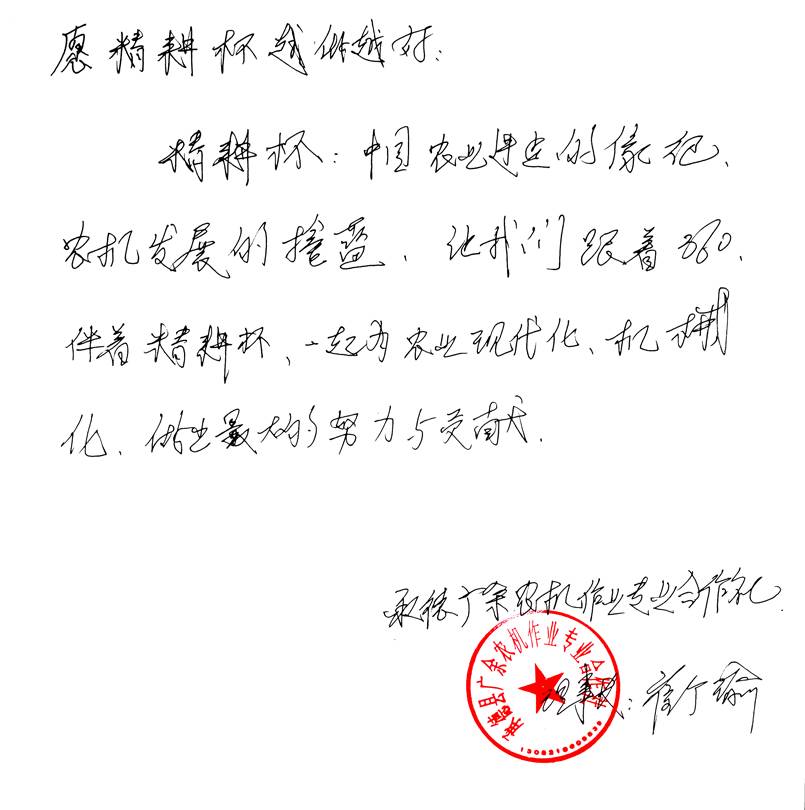 愿精耕杯越做越好:
精耕杯:中国农业建造的像袍、
农机发展的摇蓝、让我们跟着360、
伴着精耕杯、一起为农业现代化、机械
化、做出最大的努力与贡献.
承德广余农机作业专业合作社
承德县广余农机作业专业合作社
理事长: